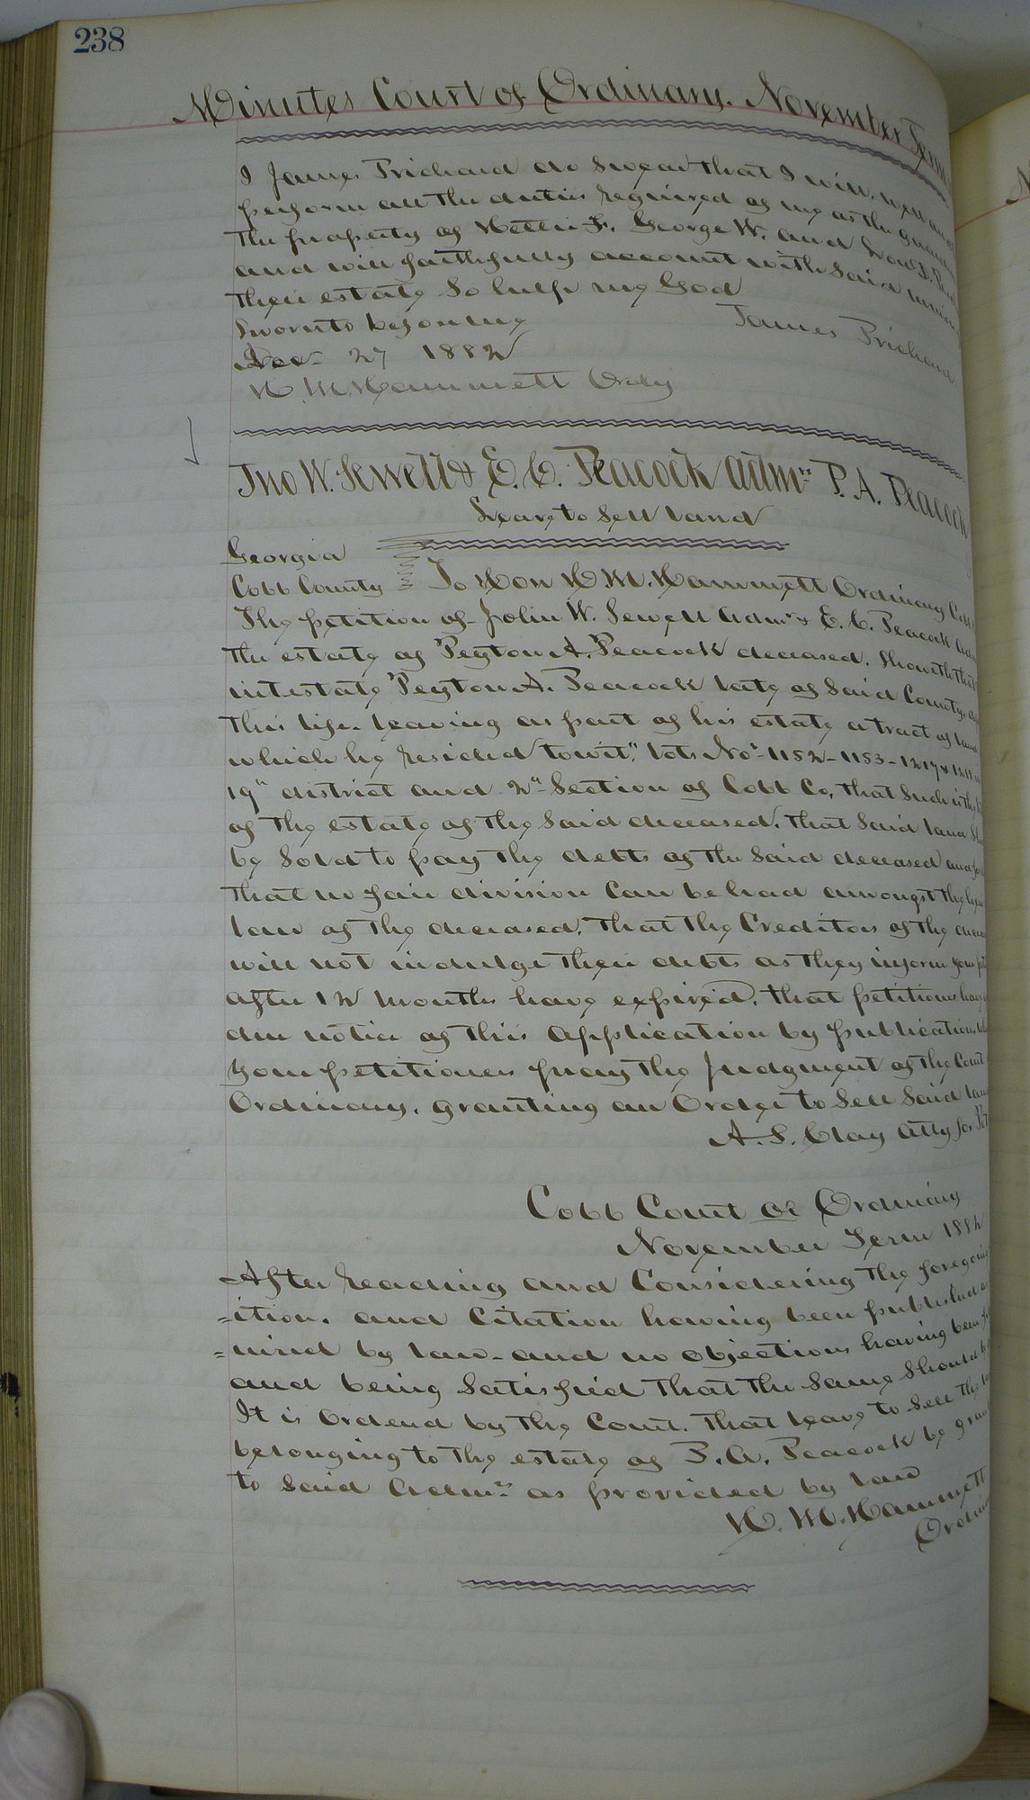 238
Minutes Court of Ordinary. November Term
I James Prichard do swear that I will, well and
perform all the duties required of me as the guardian
the property of Nettie F. George W. and
and will faithfully account with said minors
their estate So help my God
Sworn to before me James Prichard
Dec 27 1882
H. M. Hammett Ordy
Jno W. Sewell & E. C. Peacock Admrs P. A. Peacock
Leave to Sell land
Georgia
Cobb County To Hon H. M. Hammett Ordinary Cobb
The petition of John W. Sewell Admr & E. C. Peacock
the estate of Peyton A. Peacock deceased, Showeth that
intestate Peyton A. Peacock late of Said County
this life. leaving as part of his estate a tract of land
which he resided towit," lots Nos 1152-1153-1217 &
19th district and 2nd Section of Cobb Co, that such is the
of the estate of the said deceased. that said land
be Sold to pay the debts of the said deceased and
that no fair division can be had amongst the
law of the deceased, that the Creditors of the
will not indulge their debts as they inform your
after 12 months have expired. that petitioners have
due notice of this application by publication
your petitioners pray the Judgment of the Court
Ordinary, granting an Order to Sell Said land
A. S. Clay atty for
Cobb Court of Ordinary
November Term 1882
After reading and Considering the foregoing
=ition. and Citation having been published
=uired by law- and no objections having been
and being Satisfied that the Same Should
It is Ordered by the Court. that leave to Sell the
belonging to the estate of P. A. Peacock be
to said Admrs as provided by law
H. M. Hammett